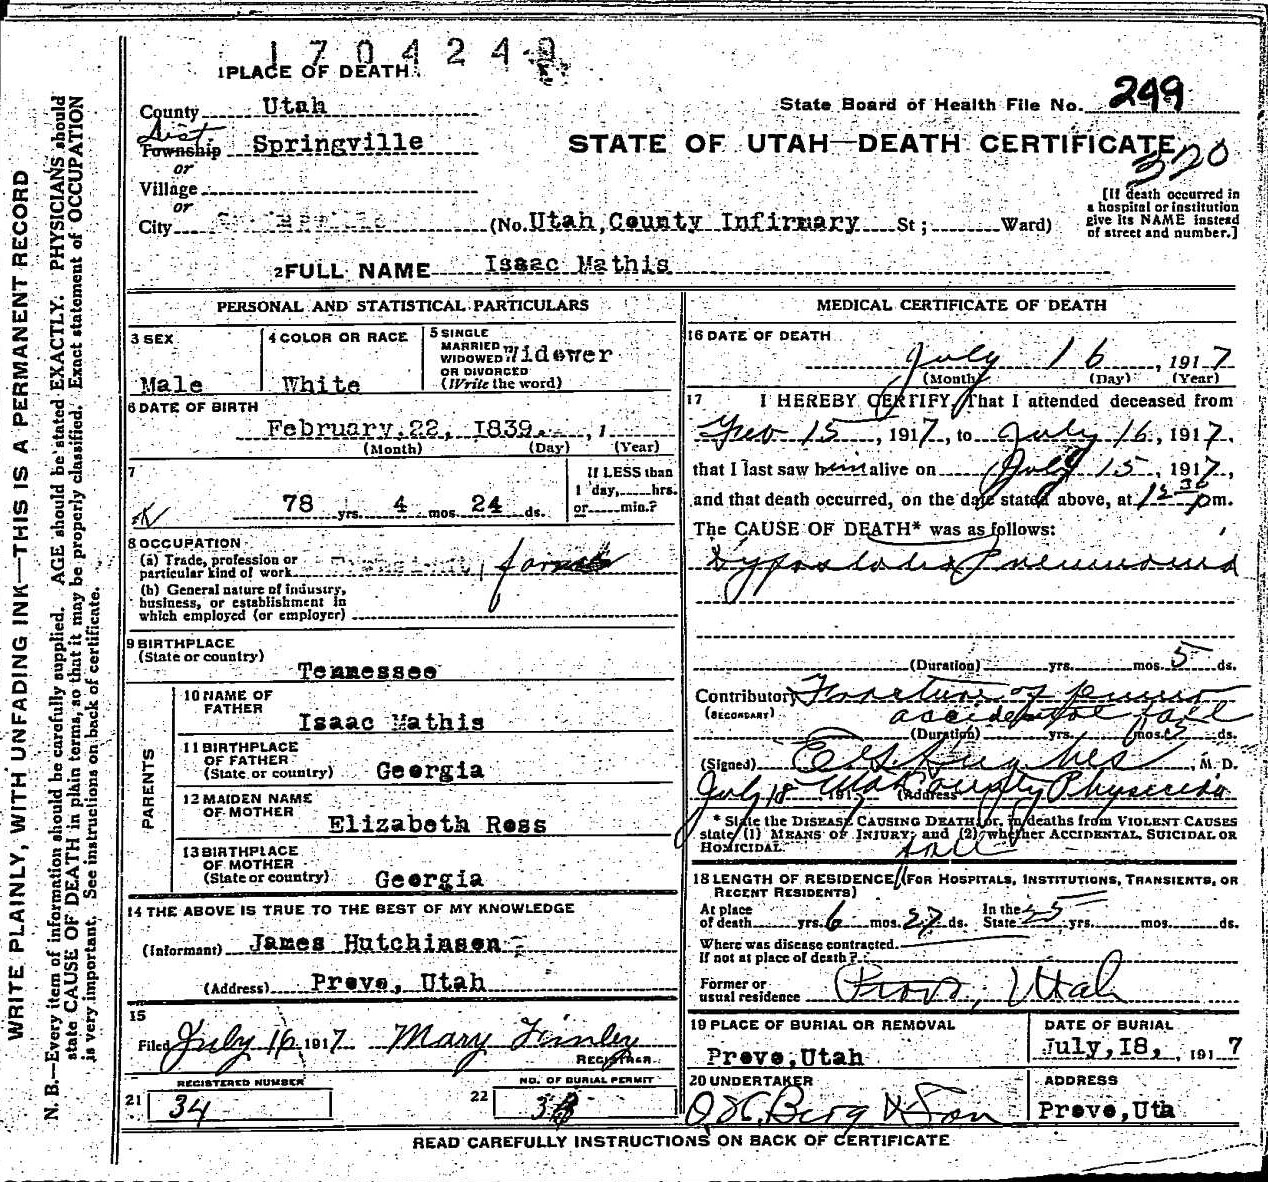 1704249
1 PLACE OF DEATH
County Utah
State Board of Health File No. 299
Dist
Township Springville
STATE OF UTAH—DEATH CERTIFICATE
320
or
Village
or
City
(No. Utah County Infirmary St; Ward)
[If death occurred in
a hospital or institution
give its NAME instead
of street and number.]
2 FULL NAME Isaac Mathis
PERSONAL AND STATISTICAL PARTICULARS
3 SEX
Male
4 COLOR OR RACE
White
5 SINGLE
MARRIED
WIDOWED Widower
OR DIVORCED
(Write the word)
6 DATE OF BIRTH
February 22, 1839. , 1
(Month) (Day) (Year)
7
78 yrs. 4 mos. 24 ds.
If LESS than
1 day, hrs.
or min.?
8 OCCUPATION
(a) Trade, profession or
particular kind of work
(b) General nature of industry,
business, or establishment in
which employed (or employer)
9 BIRTHPLACE
(State or country)
Tennessee
PARENTS
10 NAME OF
FATHER
Isaac Mathis
11 BIRTHPLACE
OF FATHER
(State or country) Georgia
12 MAIDEN NAME
OF MOTHER
Elizabeth Ross
13 BIRTHPLACE
OF MOTHER
(State or country) Georgia
14 THE ABOVE IS TRUE TO THE BEST OF MY KNOWLEDGE
(Informant) James Hutchinson
(Address) Provo, Utah
15
Filed July 16 1917 Mary Finley
REGISTRAR
REGISTERED NUMBER
21 34
NO. OF BURIAL PERMIT
22
MEDICAL CERTIFICATE OF DEATH
16 DATE OF DEATH
July 16, 1917
(Month) (Day) (Year)
17 I HEREBY CERTIFY, That I attended deceased from
15, 1917, to July 16, 1917,
that I last saw him alive on July 15, 1917,
and that death occurred, on the date stated above, at 12 30 pm.
The CAUSE OF DEATH* was as follows:
Hypostatic Pneumonia
(Duration) yrs. mos. 5 ds.
Contributory Fracture of femur
(SECONDARY) accidental fall
(Duration) yrs. mos. ds.
(Signed) Hughes, M. D.
July 18 191 (Address) Utah County Physician
* State the DISEASE CAUSING DEATH; or, in deaths from VIOLENT CAUSES
state (1) MEANS OF INJURY; and (2) whether ACCIDENTAL, SUICIDAL OR
HOMICIDAL. fall
18 LENGTH OF RESIDENCE (FOR HOSPITALS, INSTITUTIONS, TRANSIENTS, OR
RECENT RESIDENTS)
At place
of death yrs. 6 mos. 27 ds. In the
State 25 yrs. mos. ds.
Where was disease contracted.
If not at place of death?
Former or
usual residence Provo, Utah
19 PLACE OF BURIAL OR REMOVAL
Provo, Utah
DATE OF BURIAL
July, 18, , 1917
20 UNDERTAKER
Berg & Son
ADDRESS
Provo, Uta
READ CAREFULLY INSTRUCTIONS ON BACK OF CERTIFICATE
WRITE PLAINLY, WITH UNFADING INK—THIS IS A PERMANENT RECORD
N. B.—Every item of information should be carefully supplied. AGE should be stated EXACTLY. PHYSICIANS should
state CAUSE OF DEATH in plain terms, so that it may be properly classified. Exact statement of OCCUPATION
is very important. See instructions on back of certificate.